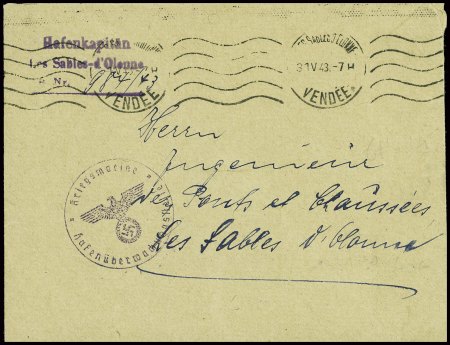 Hafenkapitän
Les Sables-d'Olonne
Nr.
VENDÉE
LES SABLES D'OLONNE
31 V 43 - 7 H
VENDÉE
Herrn
Ingenieur
des Ponts et Chaussées
Les Sables d'Olonne
Kriegsmarine